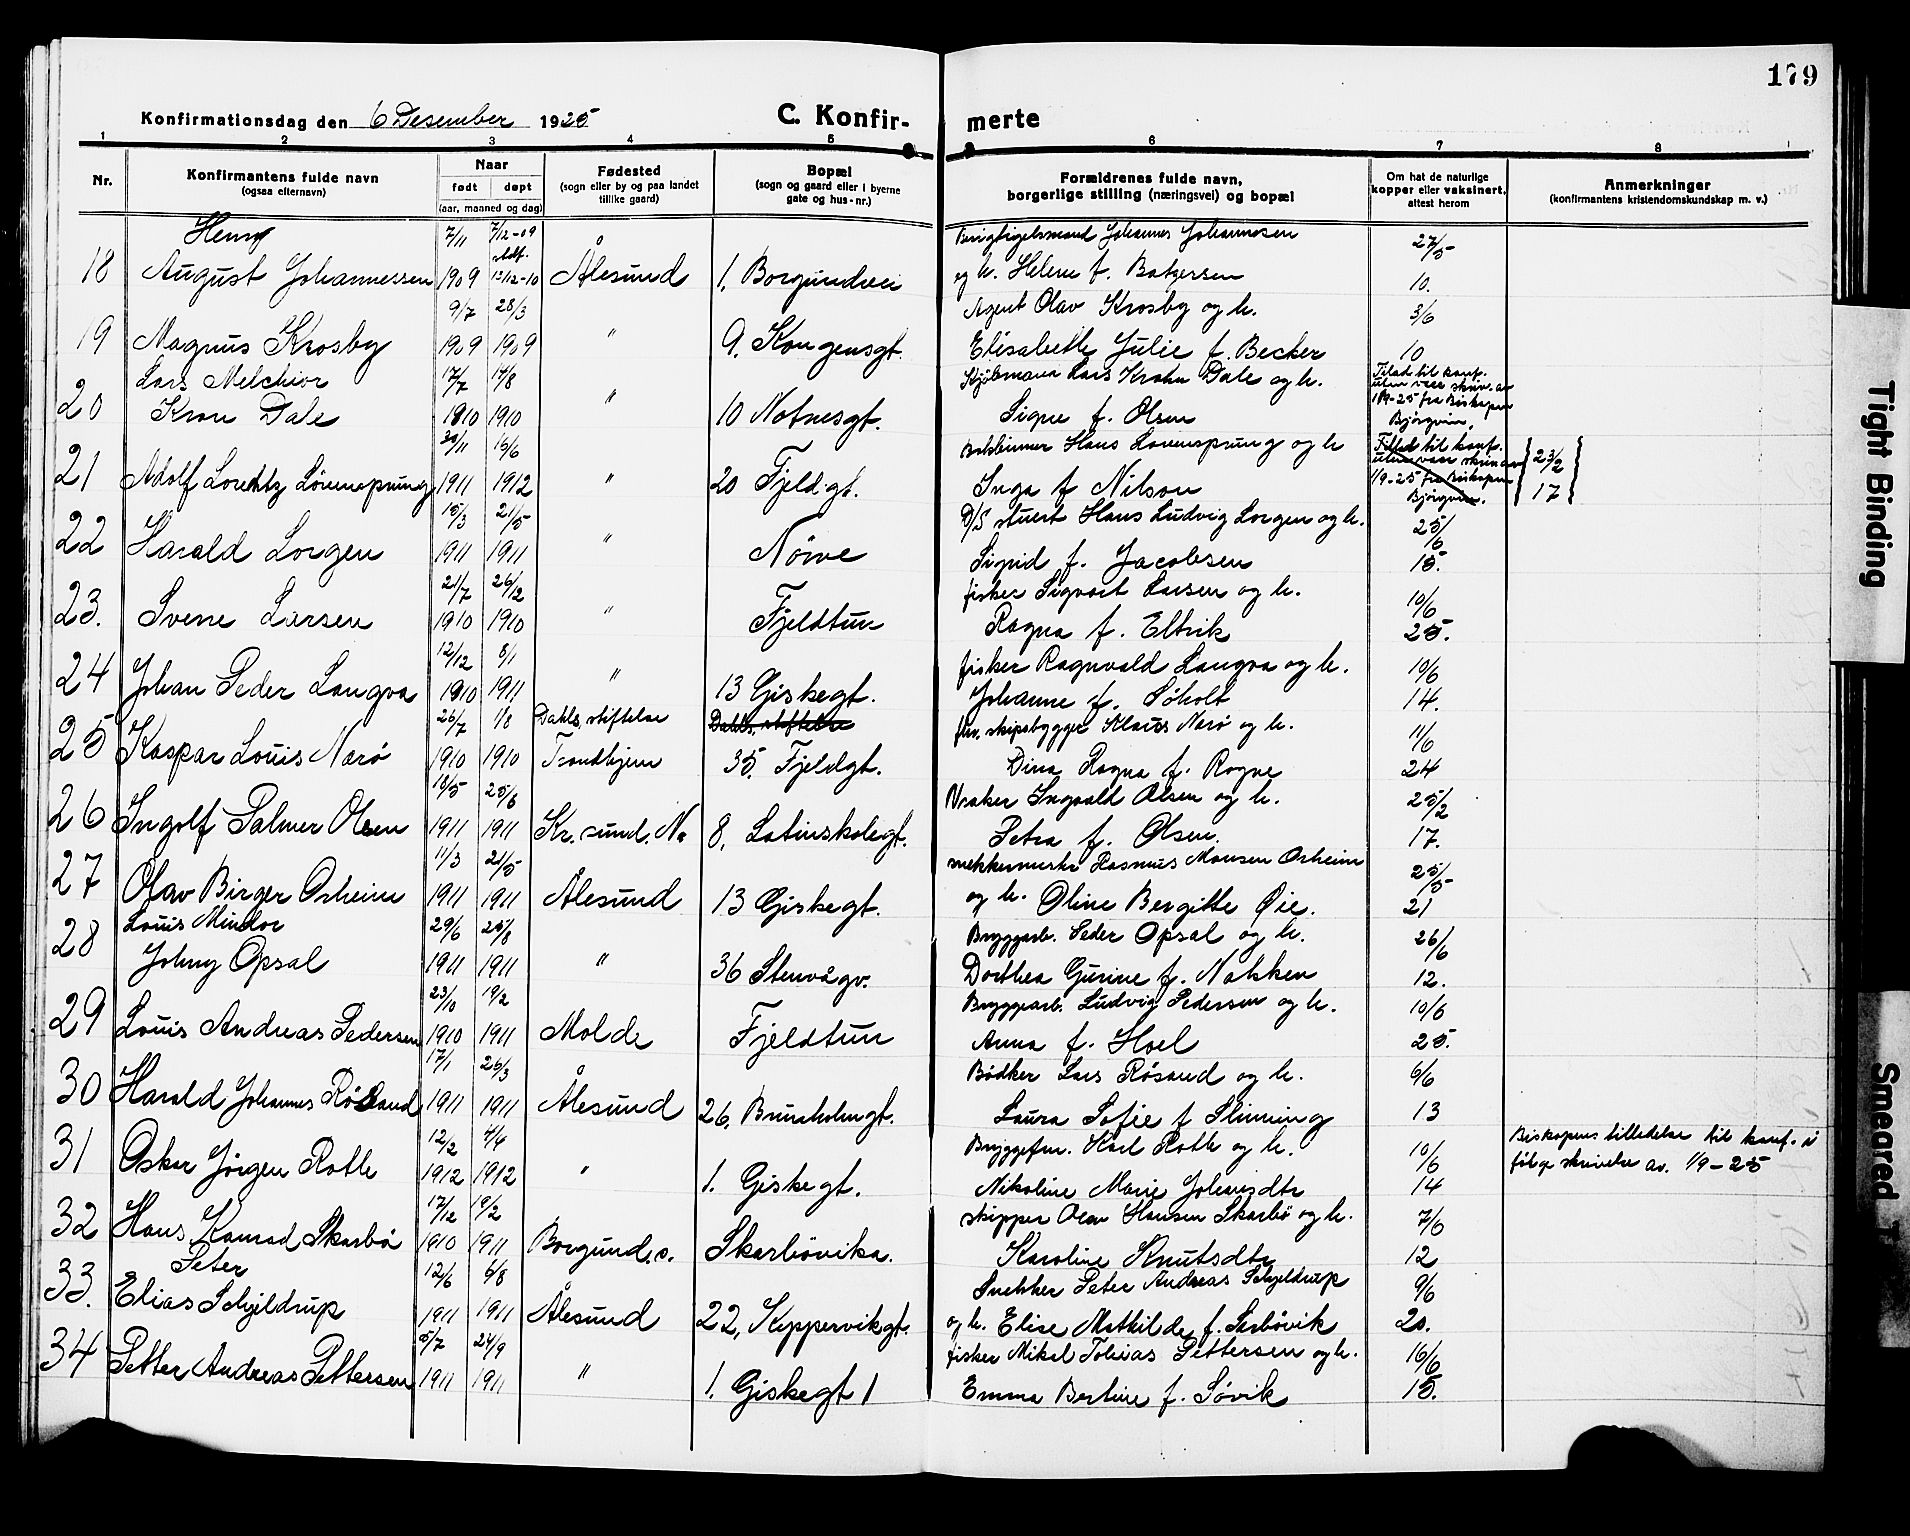 179
Konfirmationsdag den 6 Desember 1925
C. Konfirmerte
1 2 3 4 5 6 7 8
Nr.
Konfirmantens fulde navn
(ogsaa efternavn)
Naar
født døpt
(aar, maaned og dag)
Fødested
(sogn eller by og paa landet
tillike gaard)
Bopæl
(sogn og gaard eller i byerne
gate og hus-nr.)
Forældrenes fulde navn,
borgerlige stilling (næringsvei) og bopæl
Om hat de naturlige
kopper eller vaksinert,
attest herom
Anmerkninger
(konfirmantens kristendomskundskap m. v.)
Henry 7/11 7/12-09 Johannes Johannesen 27/5
18 August Johannessen 1909 12/12-10 Ålesund 1, Borgundvei og h. Helene f. 10.
9/7 28/3 Agent Olav Krosby og h. 3/6
19 Magnus Krosby 1909 1909 " 9, Kongensgt. Elisabeth Julie f. Becker 10
Lars Melchior 17/7 14/8 Lars Krohn Dale og h. Tilad til konf.
20 Kron Dale 1910 1910 " 10 Notnesgt. Signe f. Olsen 1/9-25 fra Biskopen
Bjørgvin.
30/11 16/6 Hans Lövensprung og h Tillad til konf.
21 Adolf Lorentz Lövensprung 1911 1912 " 20 Fjeldgt. Inga f Nilson 1/9-25 fra Biskopen Bjørgvin. 23/2 17
15/3 21/5 D/S stuert Hans Ludvig Lorgen og h. 25/6
22 Harald Lorgen 1911 1911 " Nörve Sigrid f. Jacobsen 15.
21/7 26/12 fisker Sigvart Larsen og h. 10/6
23. Sverre Larsen 1910 1910 " Fjeldtun Ragna f. Eltvik 25.
12/12 8/1 fisker Ragnvald Langva og h. 10/6
24 Johan Peder Langva 1910 1911 " 13 Giskegt. Johanne f. Søholt 14.
26/7 1/8 Dahls stiftelse Dahls stiftelse skipsbygger Klaus Narø og h. 11/6
25 Kaspar Louis Narö 1910 1910 Trondhjem 35. Fjeldgt. Dina Ragna f. Rogne 24
18/5 25/6 Vraker Ingvald Olsen og h. 25/2
26 Ingolf Palmer Olsen 1911 1911 Kr.sund. N. 8, Latinskolegt. Petra f. Olsen. 17.
11/3 21/5 Rasmus Monsen Osheim 25/5
27 Olav Birger Osheim 1911 1911 Ålesund 13 Giskegt. og h. Oline Bergitte Øie. 21
Louis Mindor 29/6 25/8 Bryggarb. Peder Opsal og h. 26/6
28 Johny Opsal 1911 1911 " 36 Stenvågv. Dorthea Gurine f. Nakken 12.
23/10 19/2 Bryggearb. Ludvig Pedersen og h. 10/6
29 Louis Andreas Pedersen 1910 1911 Molde Fjeldtun Anna f. Hoel 25.
17/1 26/3 Bödker Lars Rösand og h. 6/6
30 Harald Johannes Rösand 1911 1911 Ålesund 26, Brunholmgt. Laura Sofie f Slinning 13
12/2 4/4 Bryggefm. Karl Rotle og h. 10/6 Biskopens tilladelse til konf. i
31 Oskar Jörgen Rotle 1912 1912 " 1. Giskegt. Nikoline Marie Johansdtr 14 følge skrivelse av. 1/9-25
17/12 19/2 skipper Olav Hansen Skarbö og h. 7/6
32 Hans Konrad Skarbö 1910 1911 Borgund.s. Skarbövika. Karoline Knutsdtr 12
Peter 12/6 6/8 Snekker Peter Andreas Schjeldrup 9/6
33. Elias Schjeldrup 1911 1911 Ålesund 22, Keppervikgt. og h. Elise Mathilde f. Sarbövik 20.
5/7 24/9 fisker Mikal Tobias Pettersen og h. 16/6
34 Petter Andreas Pettersen 1911 1911 " 1. Giskegt 1 Emma Bertine f. Sövik 15.
Tight Binding
Smeared